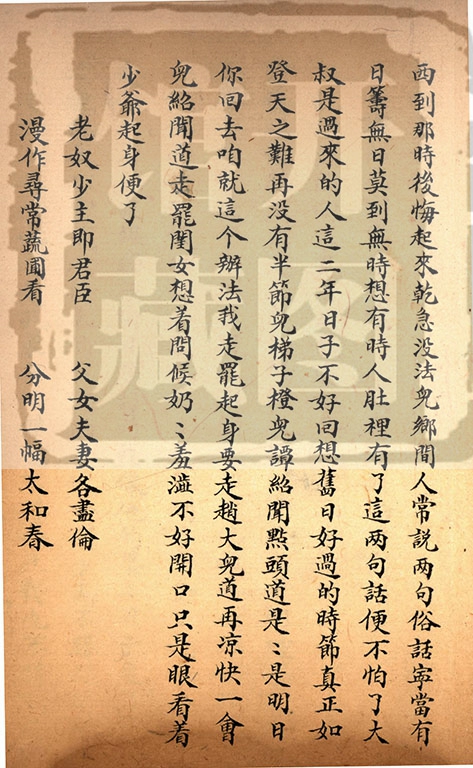 西到那時後悔起來乾急没法兒鄉間人常説两句俗話寧當有
日籌無日莫到無時想有時人肚裡有了這两句話便不怕了大
叔是過來的人這二年日子不好回想舊日好過的時節真正如
登天之難再没有半節兒梯子橙兒譚紹聞點頭道是〻是明日
你回去咱就這个辦法我走罷起身要走趙大兒道再凉快一會
兒紹聞道走罷閨女想着問候奶〻羞澁不好開口只是眼看着
少爺起身便了
老奴少主即君臣 父女夫妻各盡倫
漫作尋常蔬圃看 分明一幅太和春
開圖
館藏